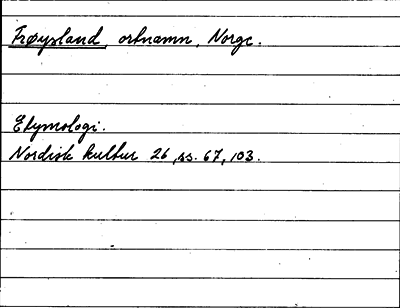 Frøysland, ortnamn, Norge.
Etymologi.
Nordisk kultur 26, ss. 67, 103.